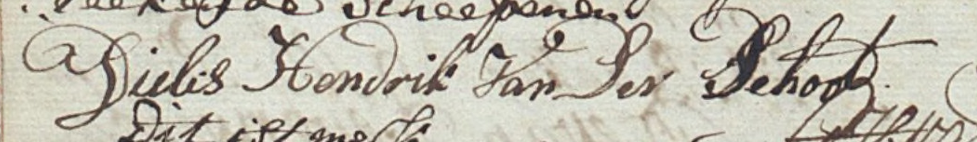 Scheepenen
Dielis Hendrik Van Der Schoot
Dit ist merk